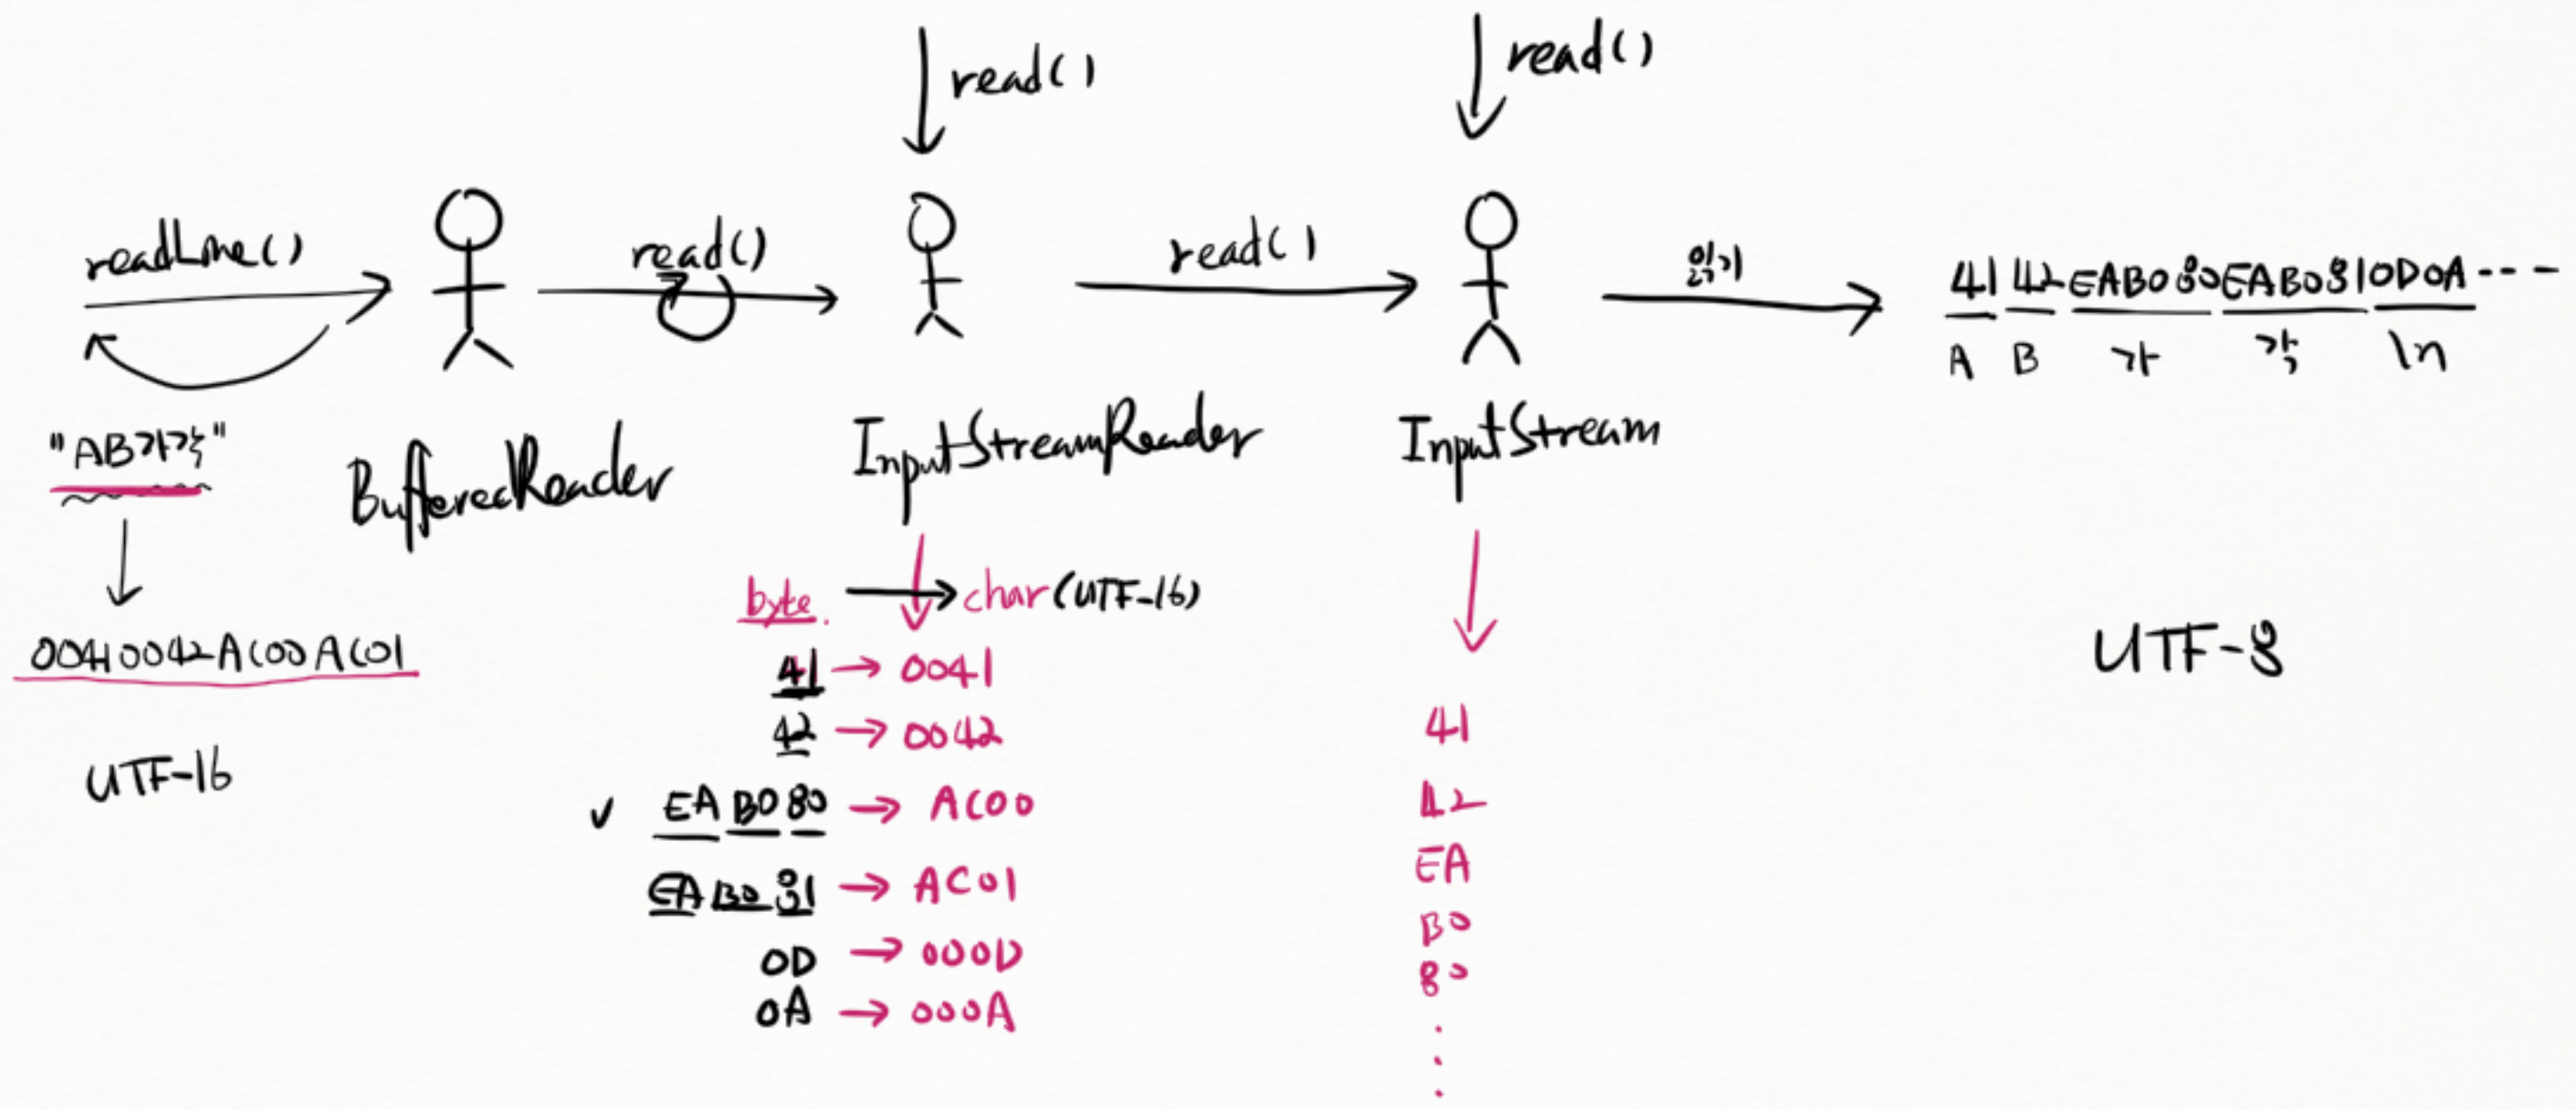 read()
read()
readLine()
read()
read()
읽기
41 42 EAB080 EAB081 0D0A ---
A B 가 각 \n
"AB가각"
BufferedReader
InputStreamReader
InputStream
byte. → char (UTF-16)
00410042AC00AC01
UTF-16
UTF-8
41 → 0041
42 → 0042
✓ EA B0 80 → AC00
EA B0 81 → AC01
0D → 000D
0A → 000A
41
42
EA
B0
80
.
.
.